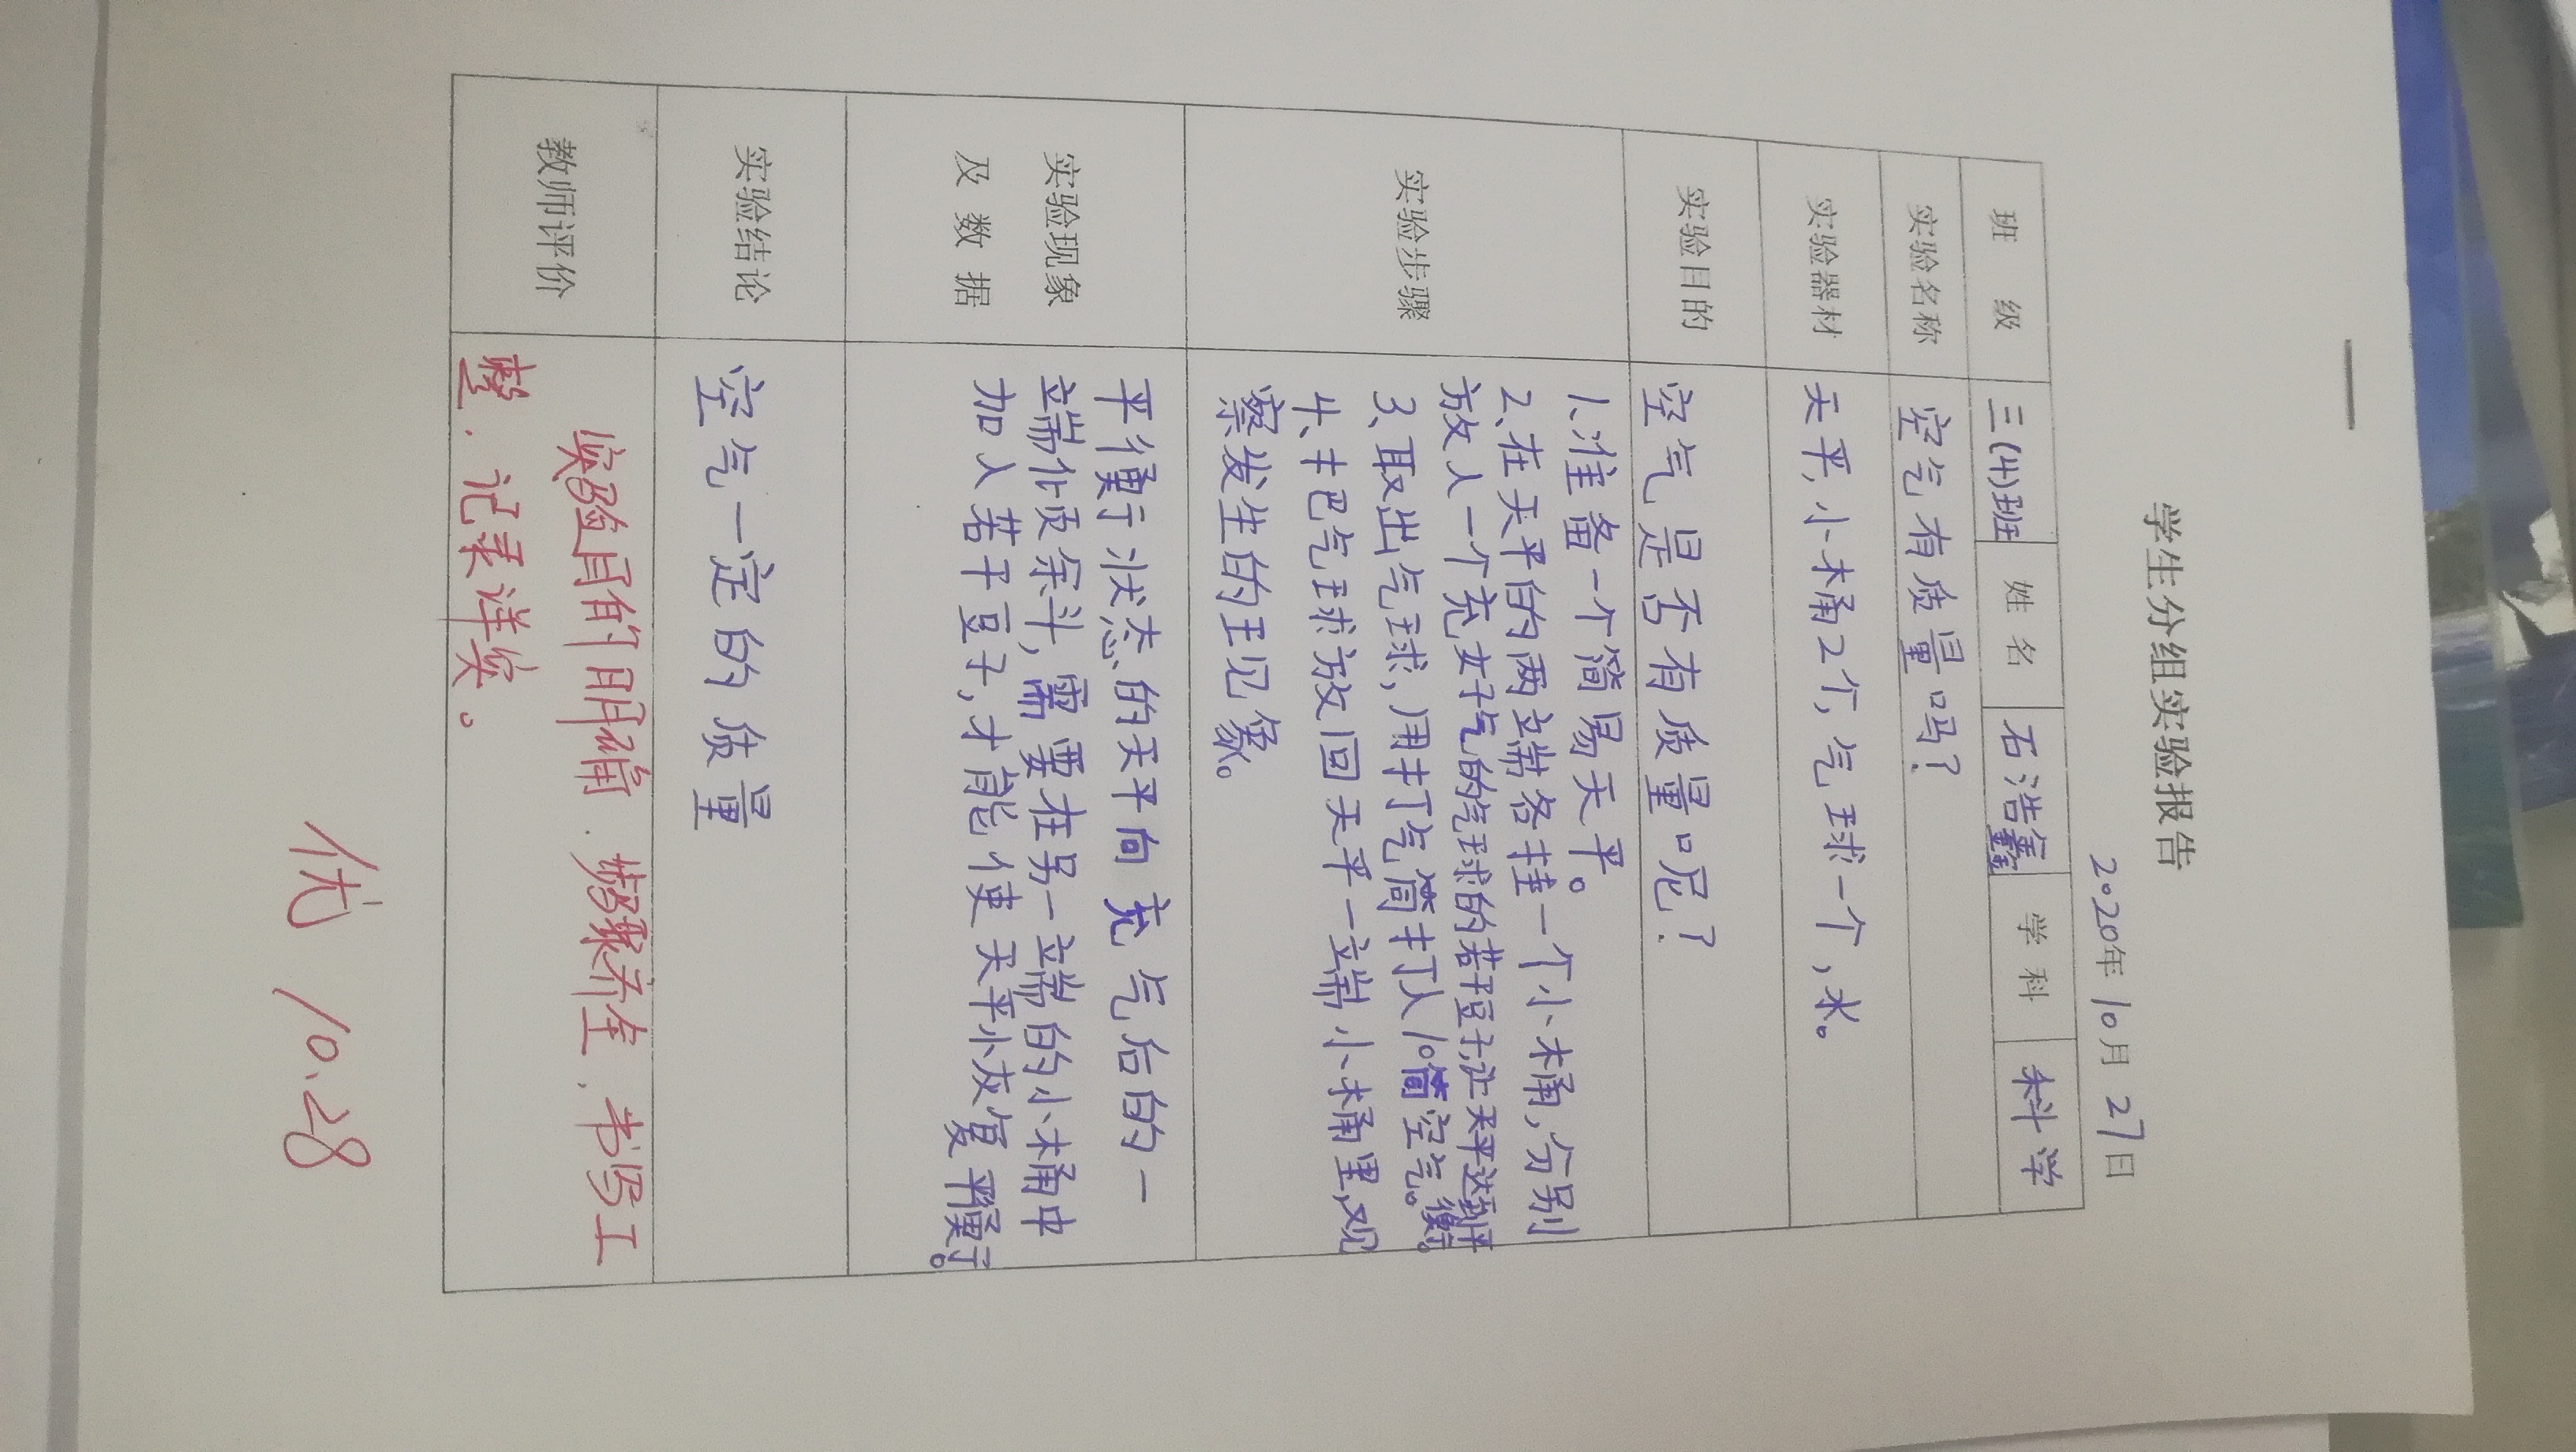 学生分组实验报告
2020年10月27日
班 级 三(4)班 姓 名 石浩鑫 学 科 科学
实验名称 空气有质量吗?
实验器材 天平,小桶2个,气球一个,水。
实验目的 空气是否有质量呢?
实验步骤
1、准备一个简易天平。
2、在天平的两端各挂一个小桶,分别
放入一个充好气的气球的若干豆子,让天平达到平
衡。
3、取出气球,用打气筒打入10筒空气。
4、把气球放回天平一端小桶里,观
察发生的现象。
实验现象
及 数 据
平衡状态的天平向充气后的一
端倾斜,需要在另一端的小桶中
加入若干豆子,才能使天平恢复平衡。
实验结论 空气一定的质量
教师评价
实验目的明确.步骤齐全.书写工
整.记录详实。
优 10.28